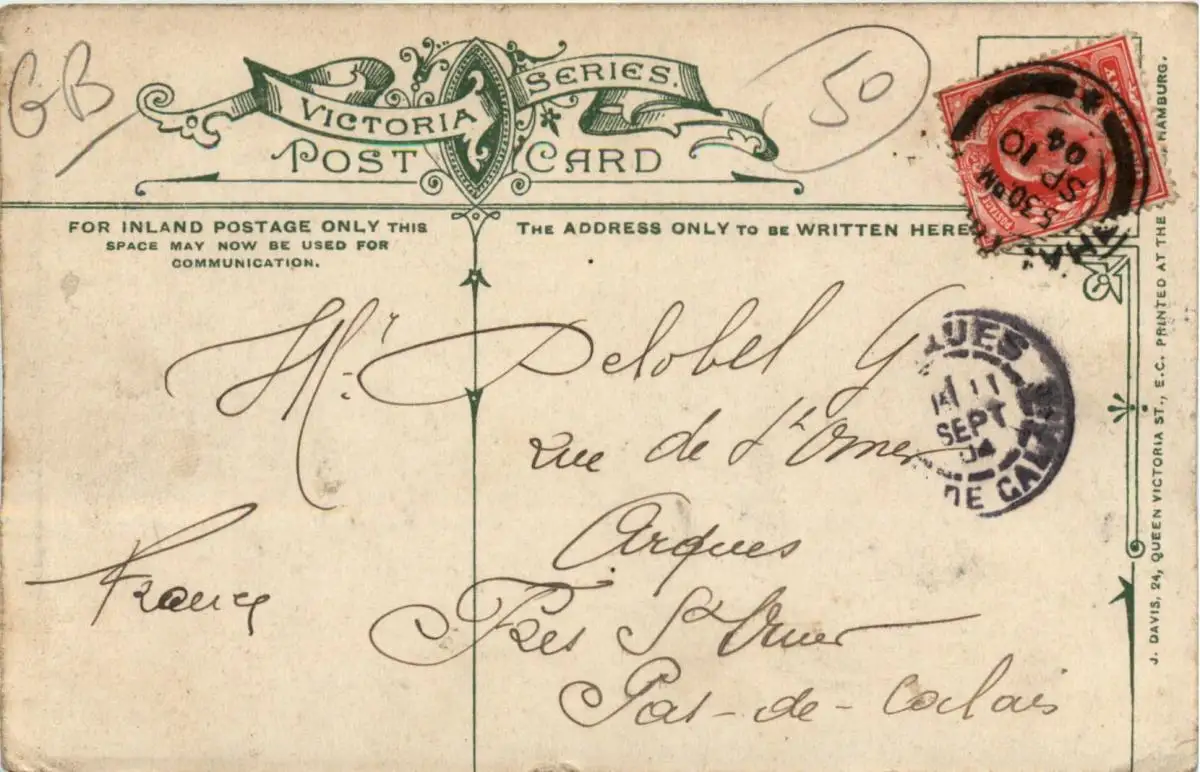 GB
50
VICTORIA SERIES.
POST CARD
FOR INLAND POSTAGE ONLY THIS
SPACE MAY NOW BE USED FOR
COMMUNICATION.
THE ADDRESS ONLY TO BE WRITTEN HERE
5.30 PM
SP 10
04
Mr. Delobel G
rue de St Omer
Arques
Près St Omer
Pas-de-Calais
France
11
SEPT
04
DE CALAIS
J. DAVIS, 24, QUEEN VICTORIA ST., E.C. PRINTED AT THE HAMBURG.